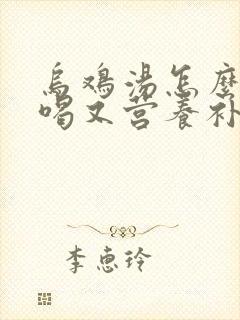 乌鸡汤怎麽
喝又营养补
李惠玲